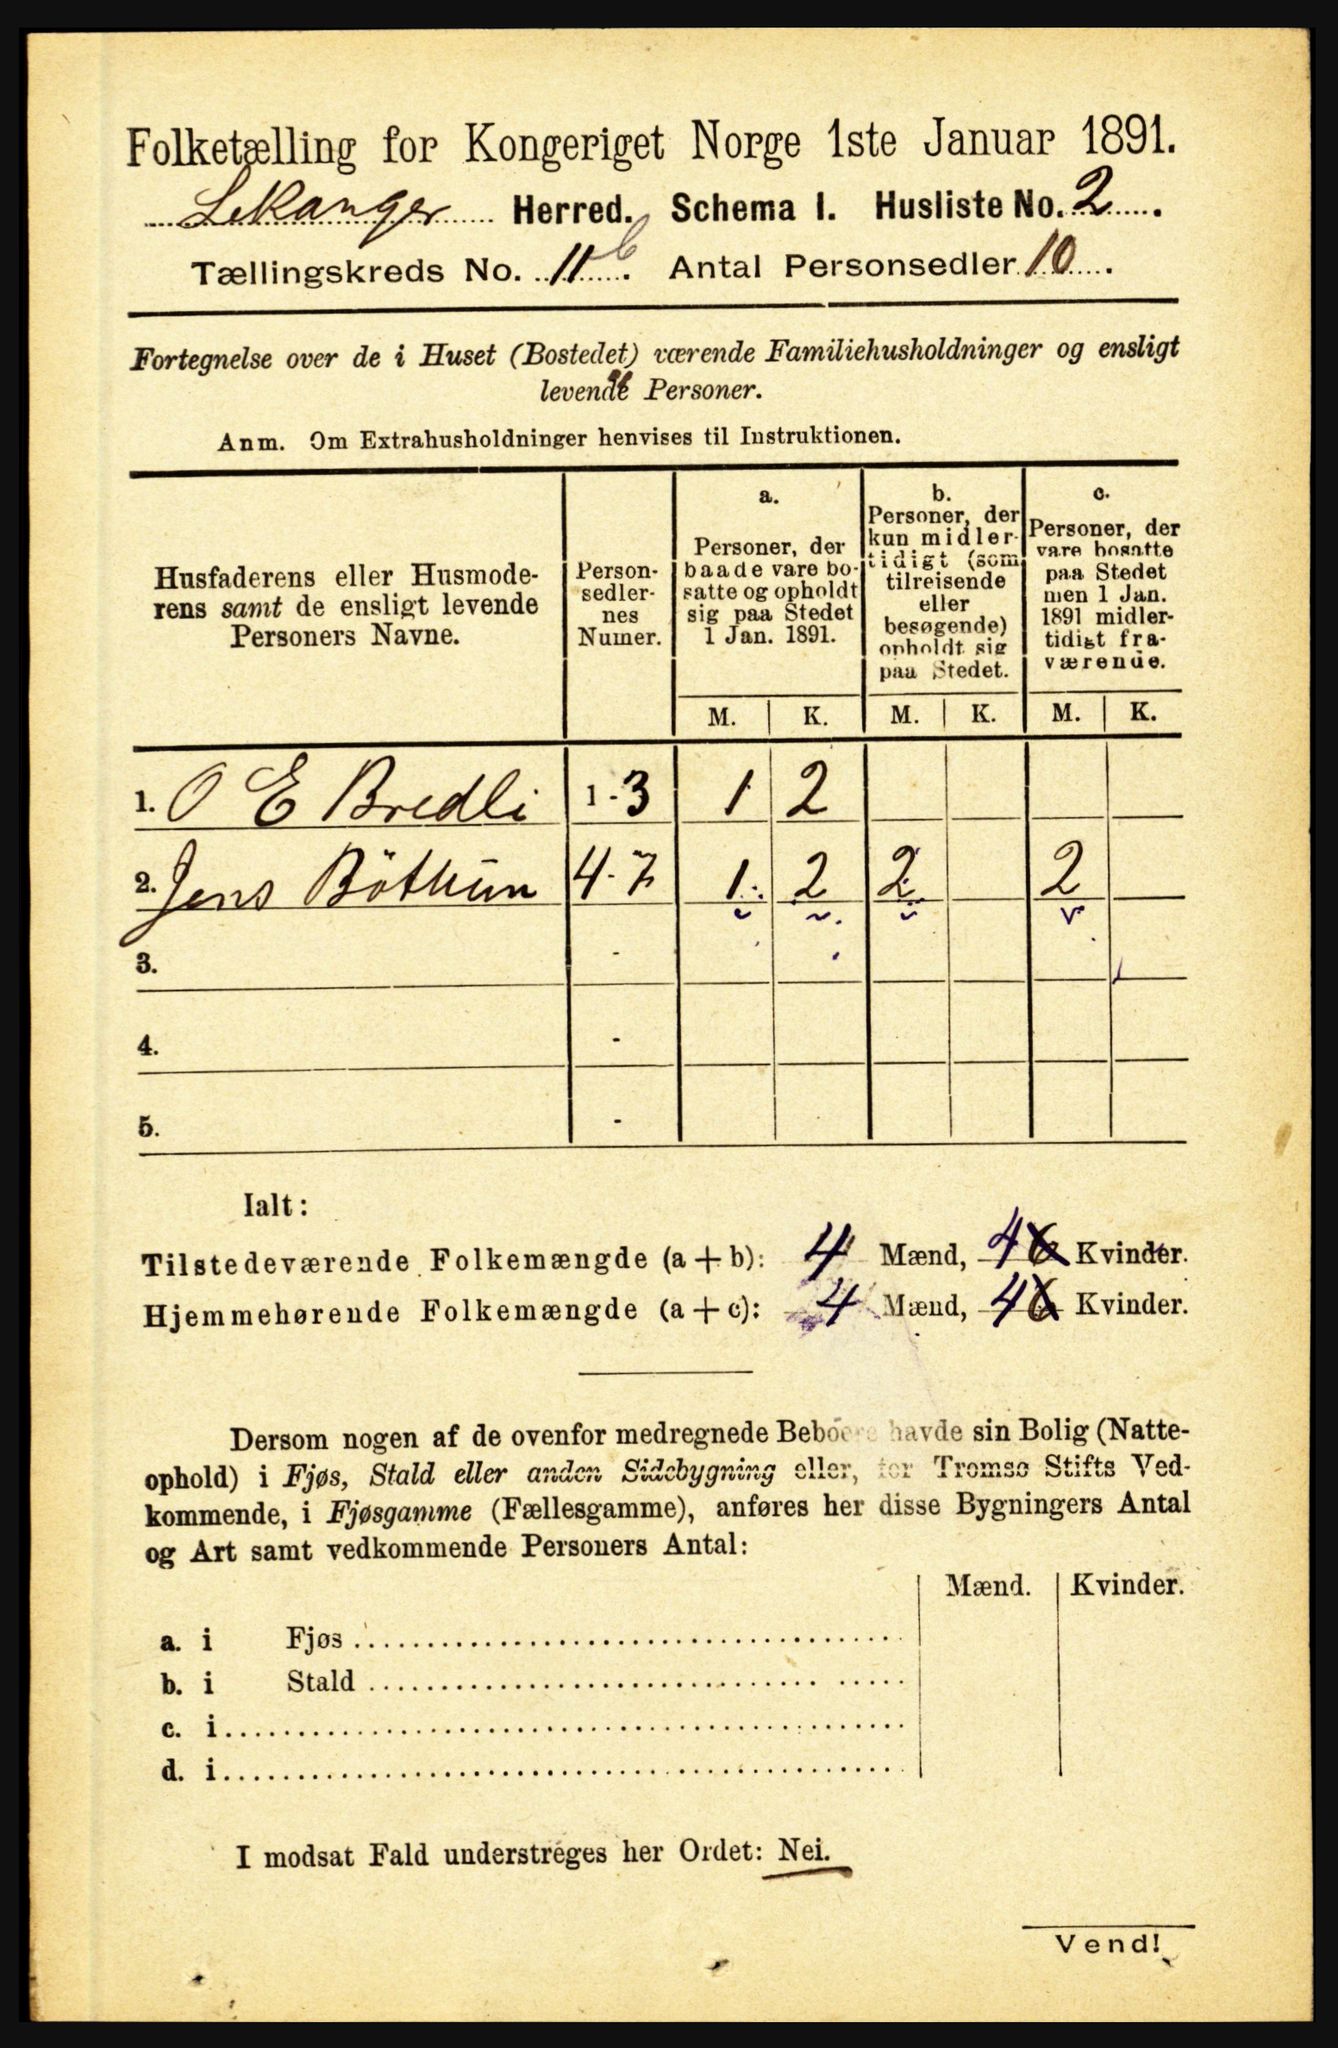 Folketælling for Kongeriget Norge 1ste Januar 1891.
Lekanger Herred. Schema I. Husliste No. 2.
Tællingskreds No. 11 b. Antal Personsedler 10.
Fortegnelse over de i Huset (Bostedet) værende Familiehusholdninger og ensligt
levende Personer.
Anm. Om Extrahusholdninger henvises til Instruktionen.
Husfaderens eller Husmode-
rens samt de ensligt levende
Personers Navne.
Person-
sedler-
nes
Numer.
a.
Personer, der
baade vare bo-
satte og opholdt
sig paa Stedet
1 Jan. 1891.
b.
Personer, der
kun midler-
tidigt (som
tilreisende
eller
besøgende)
opholdt sig
paa Stedet.
c.
Personer, der
vare bosatte
paa Stedet
men 1 Jan.
1891 midler-
tidigt fra-
værende.
M. K. M. K. M. K.
1. O E Bredli 1 - 3 1 2
2. Jens Böthun 4 - 7 1 2 2 2
3. -
4. -
5. -
Ialt:
Tilstedeværende Folkemængde (a + b): 4 Mænd, 4 6 Kvinder.
Hjemmehørende Folkemængde (a + c): 4 Mænd, 4 6 Kvinder.
Dersom nogen af de ovenfor medregnede Beboere havde sin Bolig (Natte-
ophold) i Fjøs, Stald eller anden Sidebygning eller, for Tromsø Stifts Ved-
kommende, i Fjøsgamme (Fællesgamme), anføres her disse Bygningers Antal
og Art samt vedkommende Personers Antal:
Mænd. Kvinder.
a. i Fjøs
b. i Stald
c. i
d. i
I modsat Fald understreges her Ordet: Nei.
Vend!